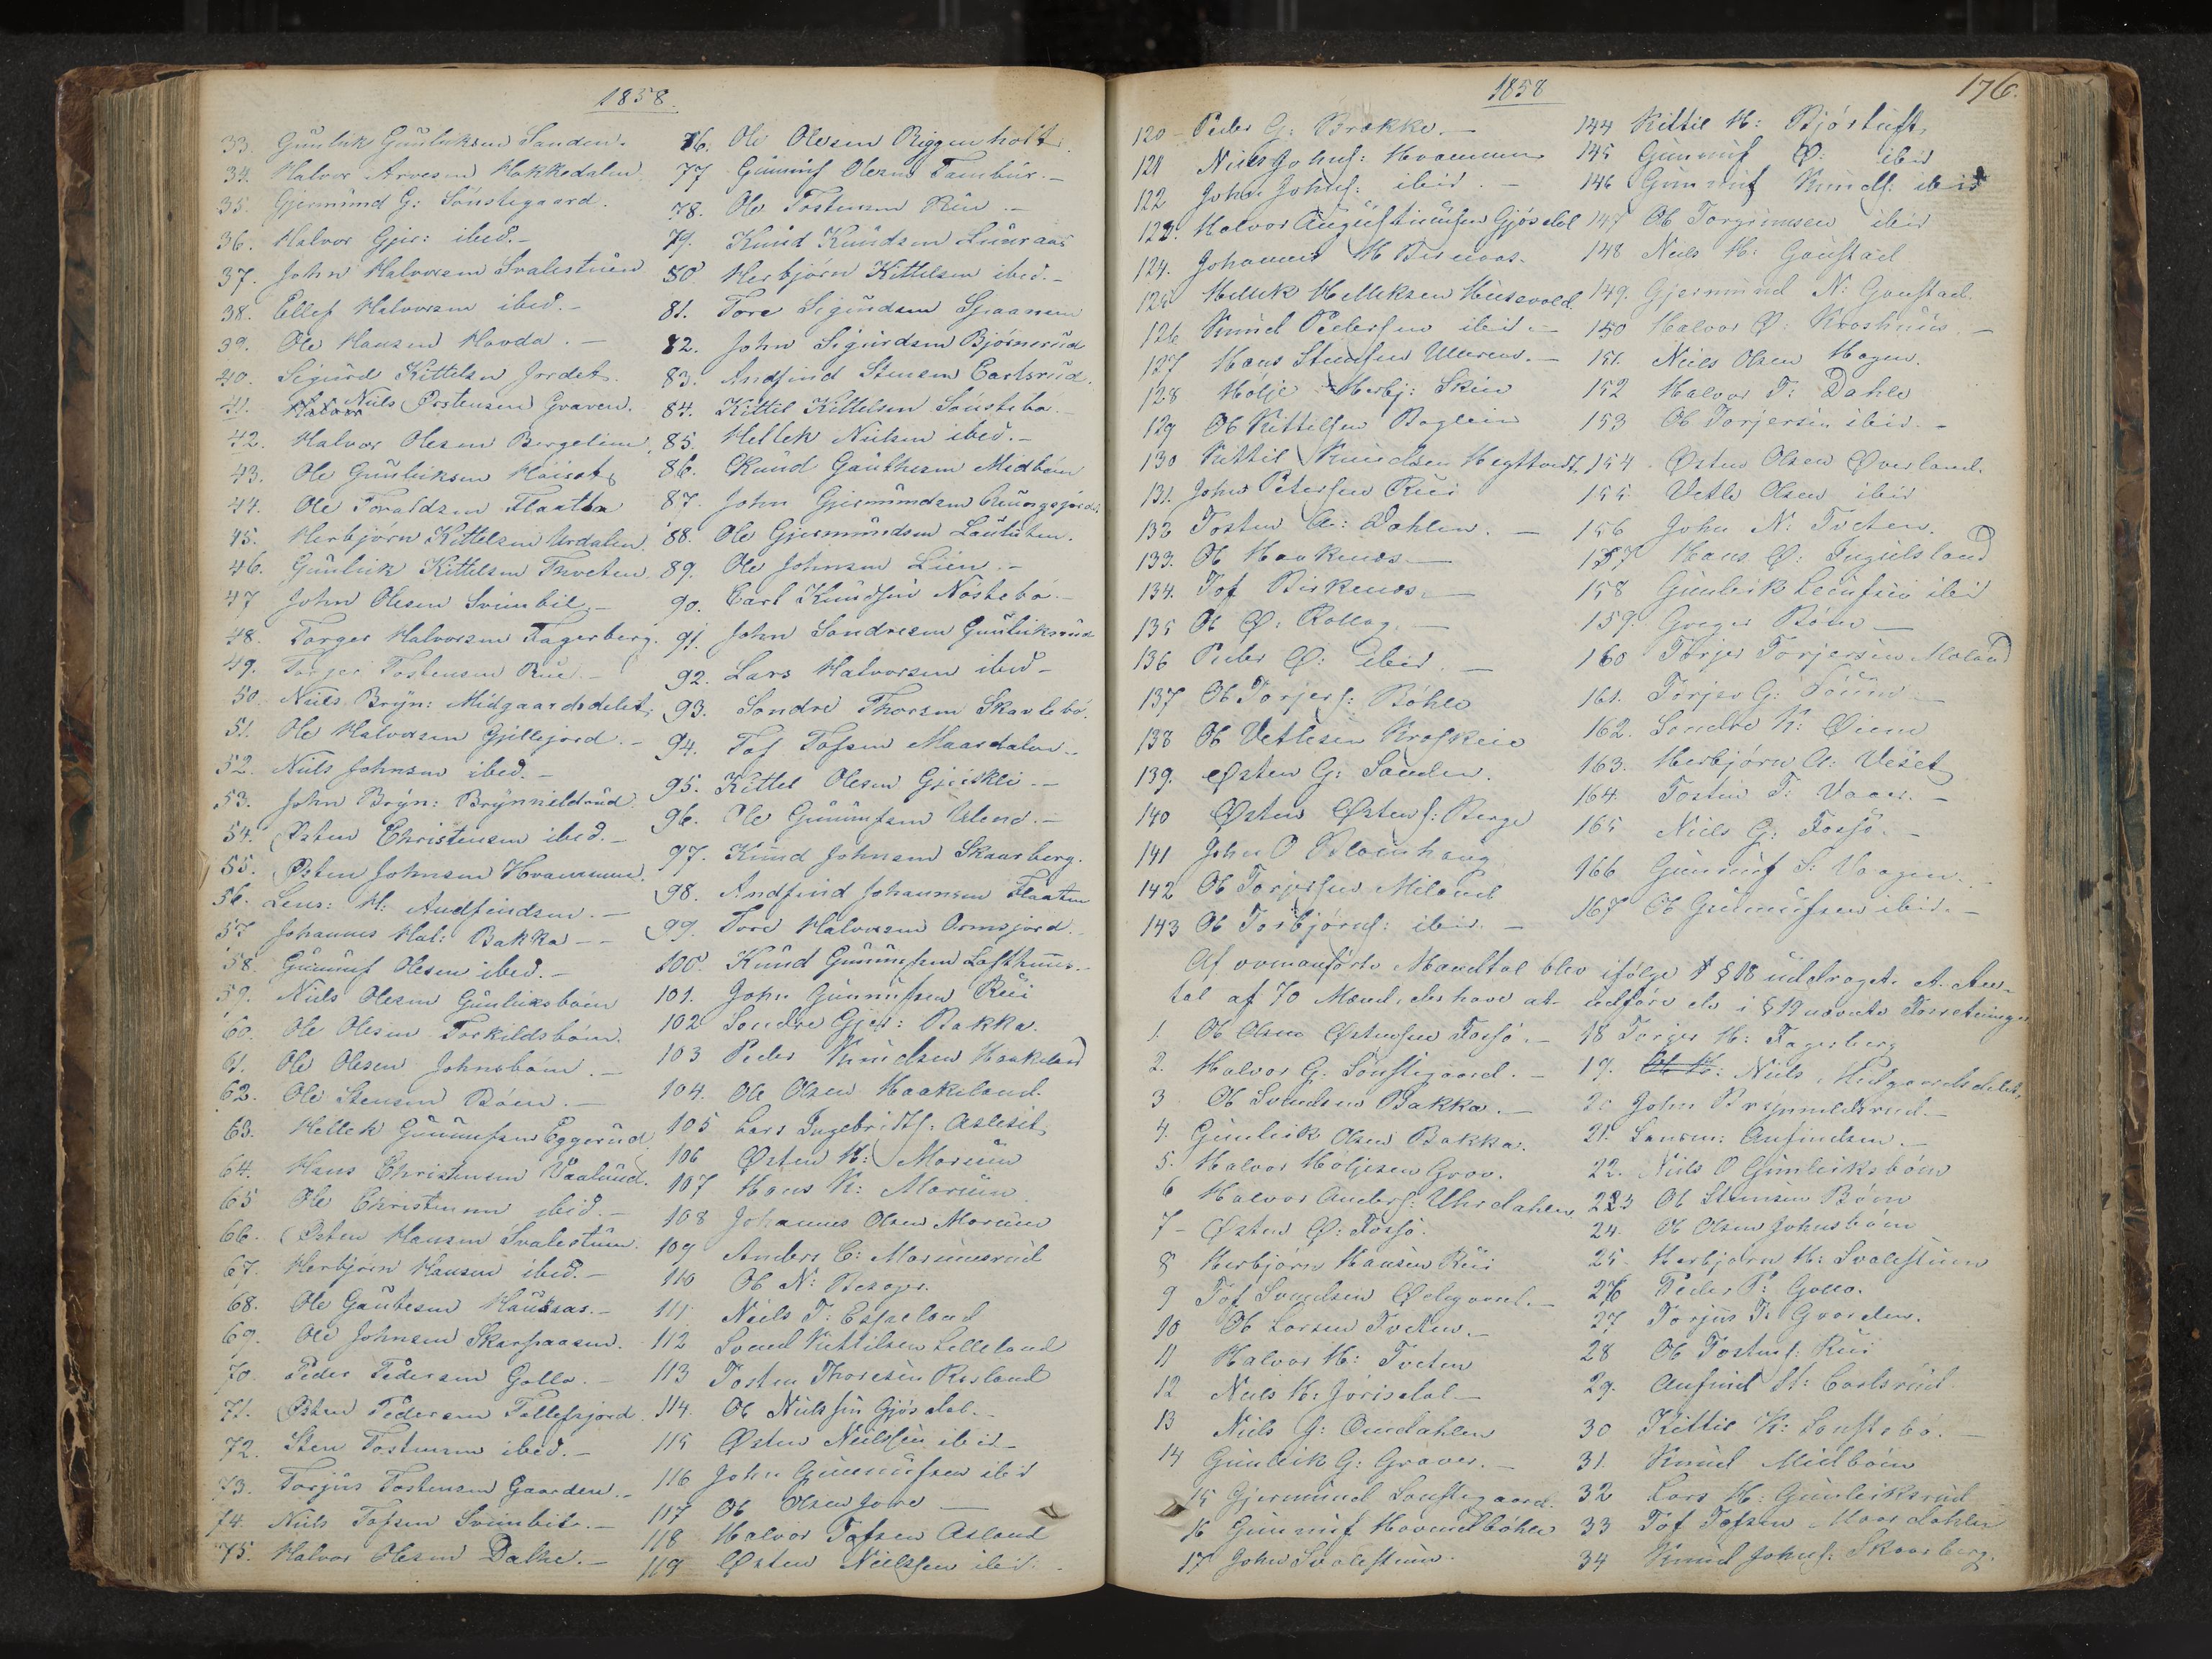 1858.
33. Gunluk Gunluksen Sanden.
34. Halvor Arvesen Hakkedalen
35. Gjermund G: Sönstegaard.
36. Halvor Gjer: ibid.-
37. John Halvorsen Svalestuen
38. Ellef Halvorsen ibid.-
39. Ole Hansen Hovda.-
40. Sigurd Kittelsen Jordet.
41. Niels Østensen Graven.
42. Halvor Olesen Bergeliem
43. Ole Gunluksen
44. Ole Toraldsen Flaatta
45. Herbjörn Kittelsen Urdalen.
46. Gunluk Kittelsen Thveten
47 John Olesen Svimbil.-
48. Torger Halvorsen Fagerberg.
49. Torjer Tostensen Rue.-
50. Niels Bryn: Midgaardsdelet.
51. Ole Halvorsen Gjellejord.-
52. Niels Johnsen ibid.-
53. John Bryn: Brynnildrud.
54. Østen Christensen ibid.-
55. Østen Johnsen Hvammen.
56. Lens: H: Andfindsen.-
57 Johannes Hal: Bakka--
58. Gunnuf Olesen ibid.-
59. Niels Olesen Gunluksböen
60. Ole Olesen Torkildsböen.
61. Ole Olesen Johnsböen.-
62. Ole Stensen Böen.-
63. Hellek Gunnufsen Eggerud
64. Hans Christensen Vaalund.
65 Ole Christensen ibid.-
66. Østen Hansen Svalestuen.
67. Herbjörn Hansen ibid.-
68. Ole Gautesen Haukaas.-
69. Ole Johnsen Skarpaasen.
70. Peder Pedersen Gollo.-
71. Østen Pedersen Tollefsjord
72. Sten Tostensen ibid.-
73. Torjus Tostensen Gaarden.-
74. Niels Tofsen Svimbil.-
75. Halvor Olesen Dalhe.-
76. Ole Olesen Riggenholt.
77 Gunnuf Olesen Tambur.-
78. Ole Tostensen Rue.-
79. Knud Knudsen Luuraas
80 Herbjörn Kittelsen ibid.-
81. Tore Sigurdsen Spaanem
82. John Sigurdsen Björnerud
83. Andfind Stensen Carlsrud.
84. Kittil Kittelsen Sönstebö.-
85. Hellek Nielsen ibid.-
86. Knud Gauthesen Midböen
87. John Gjermundsen
88. Ole Gjermundsen
89. Ole Johnsen Lien.-
90. Carl Knudsen Nöstebö.-
91. John Sondresen Gunluksrud
92. Lars Halvorsen ibid-
93. Sondre Thorsen Skarlebö.
94. Tof Tofsen Maardalen.-
95. Kittel Olesen Gjeiskli.-
96. Ole Gunnufsen Uleno.-
97. Knud Johnsen Skaarberg.
98. Andfind Johannsen Flaatin
99. Tore Halvorsen Ormsjord.-
100. Knud Gunnufsen Lofthuus.-
101. John Gunnufsen Rui
102 Sondre Gjer: Bakka.
103 Peder Knudsen Haakeland
104. Ole Olsen Haakeland.
105 Lars Ingebridts: Aslesit
106 Østen H: Moruen
107 Hans K: Moruen
108 Johannes Olsen Moruen
109 Anders C: Moruenrud
110 Ole N: Berage.
111. Niels T: Espeland
112 Svend Kittilsen Lelleland
113 Tosten Thoresen Rusland
114. Ole Nielssen Gjösdal.-
115 Østen Nielssen ibid-
116 John Gunnufsen ibid
117 Ole Olsen Jore-
118 Halvor Tofsen Asland
119 Østen Nielssen ibid:
1858
176.
120- Peder G: Brekke.-
121 Niels Johns: Hvammen
122 John Johns: ibid.-
123. Halvor Augustinusen Gjösdal
124. Johannes H Birnoos.
125 Hellik Helliksen Husevold.
126 Knud Pedersen ibid.-
127 Hans Stensen Ulleren.-
128 Hölje Herbj: Skeie
129 Ole Kittelsen Boglein
130 Kittil Knudsen Hegtveit
131. John Petersen Rui
132 Tosten A: Dahlen.-
133. Ole Haakenæs-
134. Tof Birkenæs.-
135 Ole Ø: Rollag.-
136 Peder Ø: ibid.-
137 Ole Torjers: Böhle
138 Ole Vetlesen Kroskeie
139. Østen G: Sanden.
140 Østen Østens: Berge
141 John O Blomhaug
142 Ole Torjersen Miland
143 Ole Torbjörns: ibid.-
144 Kittil H: Björtuft.
145 Gunnuf Ø: ibid
146 Gunnuf Knuds: ibid
147 Ole Torgrimsen ibid
148 Niels H: Gaustad
149. Gjermund N: Gaustad.
150 Halvor Ø: Kroshuus.-
151. Niels Olsen Hagen.
152 Halvor T: Dahle
153 Ole Torjersen ibid.-
154. Østen Olsen Øverland.
155 Vetle Olsen ibid
156 John N: Tveten.
157 Hans Ø: Ingulsland
158 Gunleik Leeufsen ibid
159. Greger Böen-
160 Torjer Torjersen Moland
161. Torjer G:
162. Sondre K: Øiene
163. Herbjörn A: Veset
164. Tostein T: Vaaer.-
165 Niels G: Fossö.-
166 Gunnuf S: Vaagen.-
167 Ole Gunnufsen ibid.-
Af ovenanførte Mandtal blev ifølge § 18 uddraget et An-
tal af 70 Mænd, der have at udføre de i § 19 nævnte Forretninger
1. Ole Olsen Østensen Fossö.-
2. Halvor G: Sönstegaard.-
3 Ole Svendsen Bakka.-
4. Gunleik Olsen Bakka.
5. Halvor Höljesen Grov.
6 Halvor Anders: Uhrdahlen
7- Østen Ø: Fossö.
8 Herbjörn Hansen Rui
9 Tof Svendsen Ødegaard.-
10 Ole Larsen Tveten.-
11 Halvor H: Tveten
12 Niels K: Jörisdal-
13 Niels G: Omdahlen
14 Gunleik G: Graver.-
15 Gjermund Sönstegaard.
16 Gunnuf Hovendböhle
17 John Svalestuen.
18 Torger H: Fagerberg
19. Ole H: Niels Midgaardsdelet,
20 John Brynnildsrud.-
21. Lensm: Anfindsen.-
22. Niels O Gunleiksböen
23 Ole Stensen Böen
24. Ole Olsen Johnsböen
25. Herbjörn H: Svalestuen
26 Peder P: Gollo.
27 Torjus T: Gaarden.
28 Ole Tostens: Rui
29. Anfind St: Carlsrud
30 Kittil K: Sönstebö.-
31. Knud Midböen
32 Lars H: Gunleiksrud
33 Tof Tofsen Maardahlen
34 Knud Johns: Skaarberg.